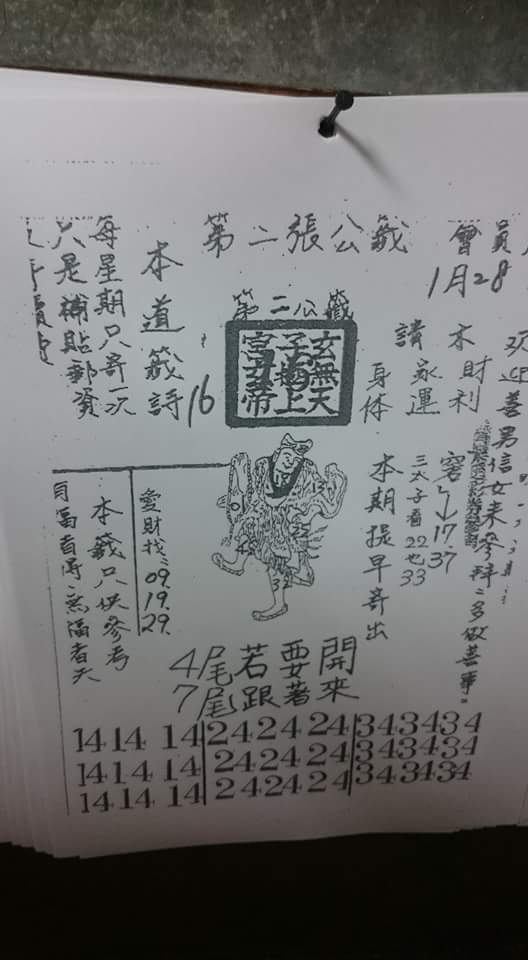 第二張公籤
會員
1月28
歡迎善男信女來參拜多做善事
木財利
請家運
身体
窄 17.37
三太子看22也33
本期提早寄出
第二公籤
玄無天
上
帝
本道籤詩
16
每星期只寄一次
只是補貼郵資
手續
愛財找 09.19.29.
本籤只供參考
42
32
4尾若要開
7尾跟著來
14 14 14 24 24 24 34 34 34
14 14 14 24 24 24 34 34 34
14 14 14 24 24 24 34 34 34